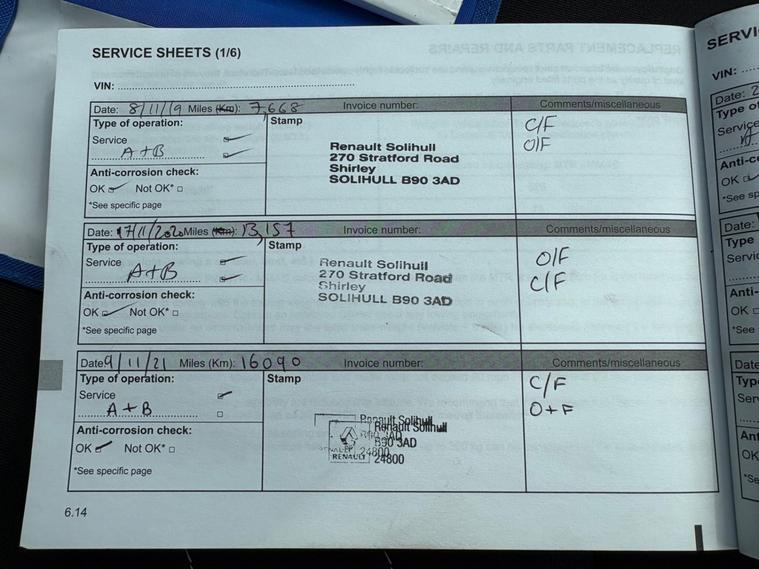 SERVICE SHEETS (1/6)
VIN:
Date: 8/11/19 Miles (Km): 7,668 Invoice number: Comments/miscellaneous
Type of operation: Stamp
Service
A+B
C/F
O/F
Renault Solihull
270 Stratford Road
Shirley
SOLIHULL B90 3AD
Anti-corrosion check:
OK Not OK*
*See specific page
Date: 17/11/2020 Miles (Km): 13,157 Invoice number: Comments/miscellaneous
Type of operation: Stamp
Service
A+B
O/F
C/F
Renault Solihull
270 Stratford Road
Shirley
SOLIHULL B90 3AD
Anti-corrosion check:
OK Not OK*
*See specific page
Date 9/11/21 Miles (Km): 16090 Invoice number: Comments/miscellaneous
Type of operation: Stamp
Service
A+B
C/F
O+F
Renault Solihull
Renault Solihull
B90 3AD
B90 3AD
24800
RENAULT 24800
Anti-corrosion check:
OK Not OK*
*See specific page
6.14
VIN:
Date:
Service
Date:
Type